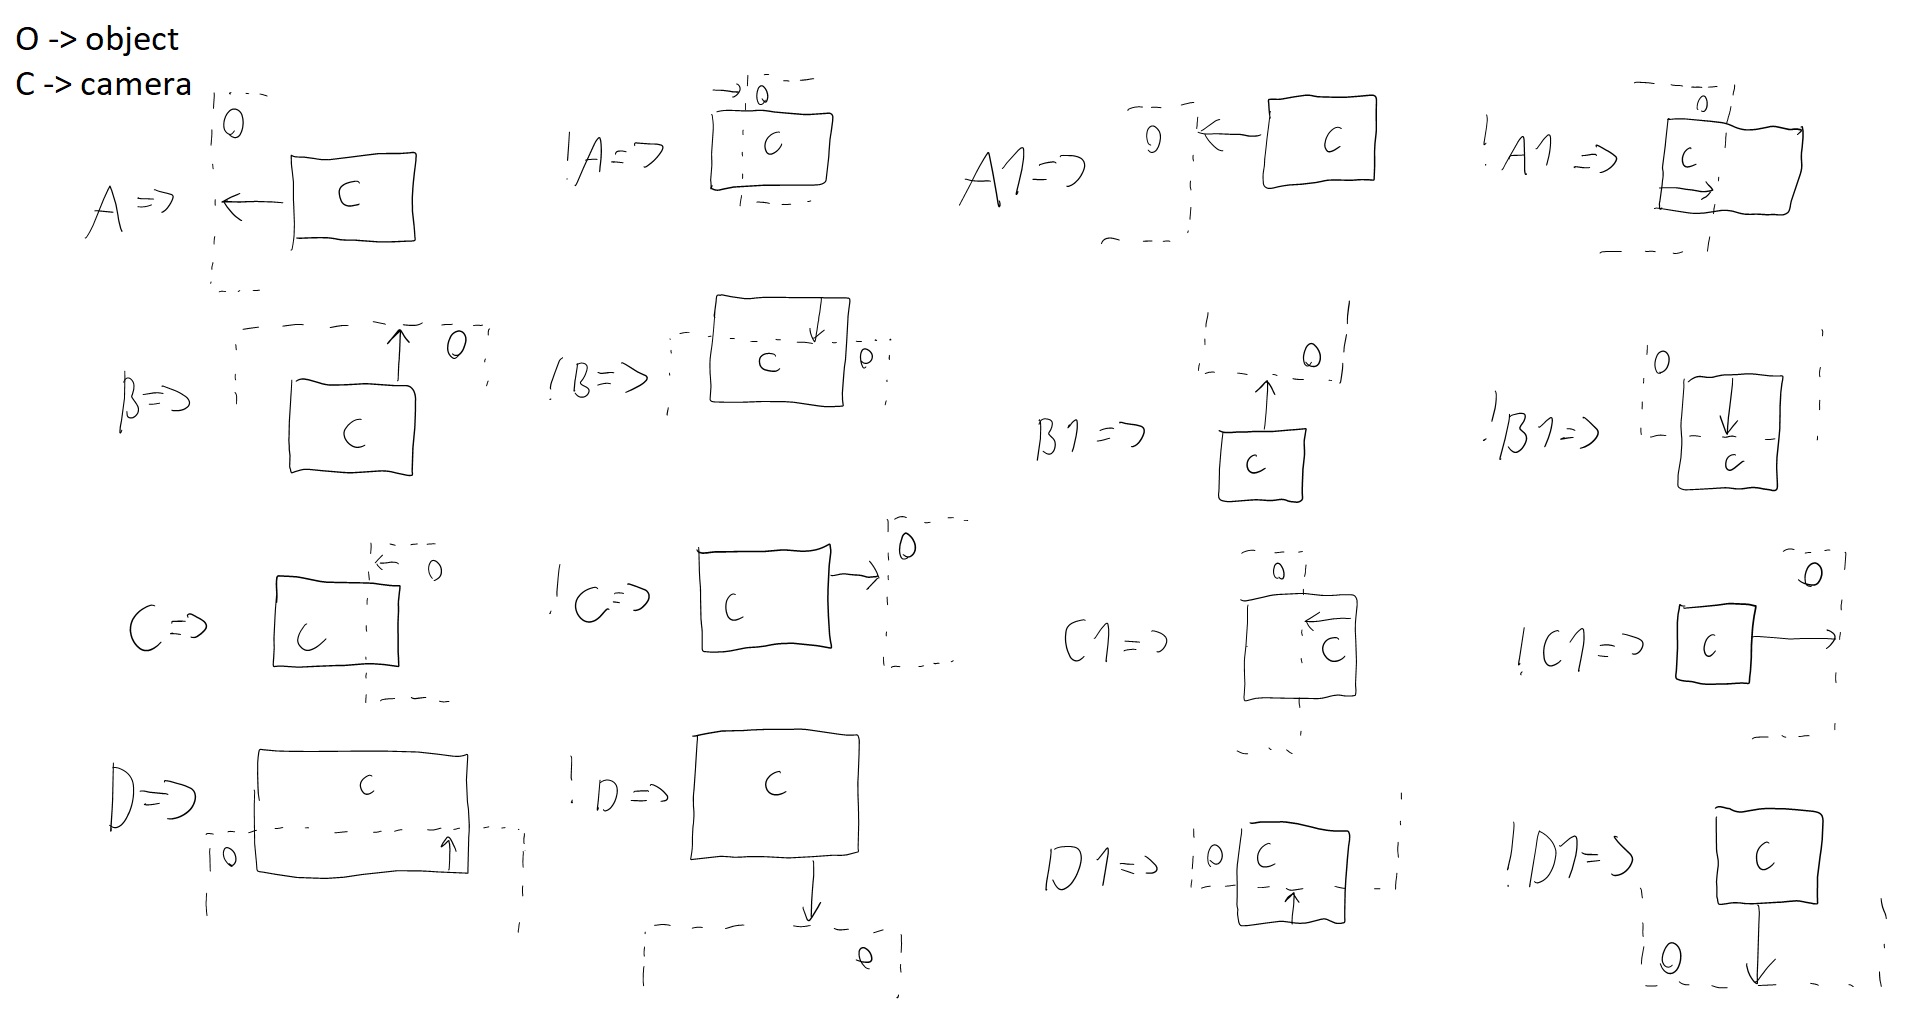 O -> object
C -> camera
A => O C
!A => O C
A1 => O C
!A1 => O C
B => O C
!B => C O
B1 => O C
!B1 => O C
C => O C
!C => O C
C1 => O C
!C1 => O C
D => C O
!D => C O
D1 => O C
!D1 => C O